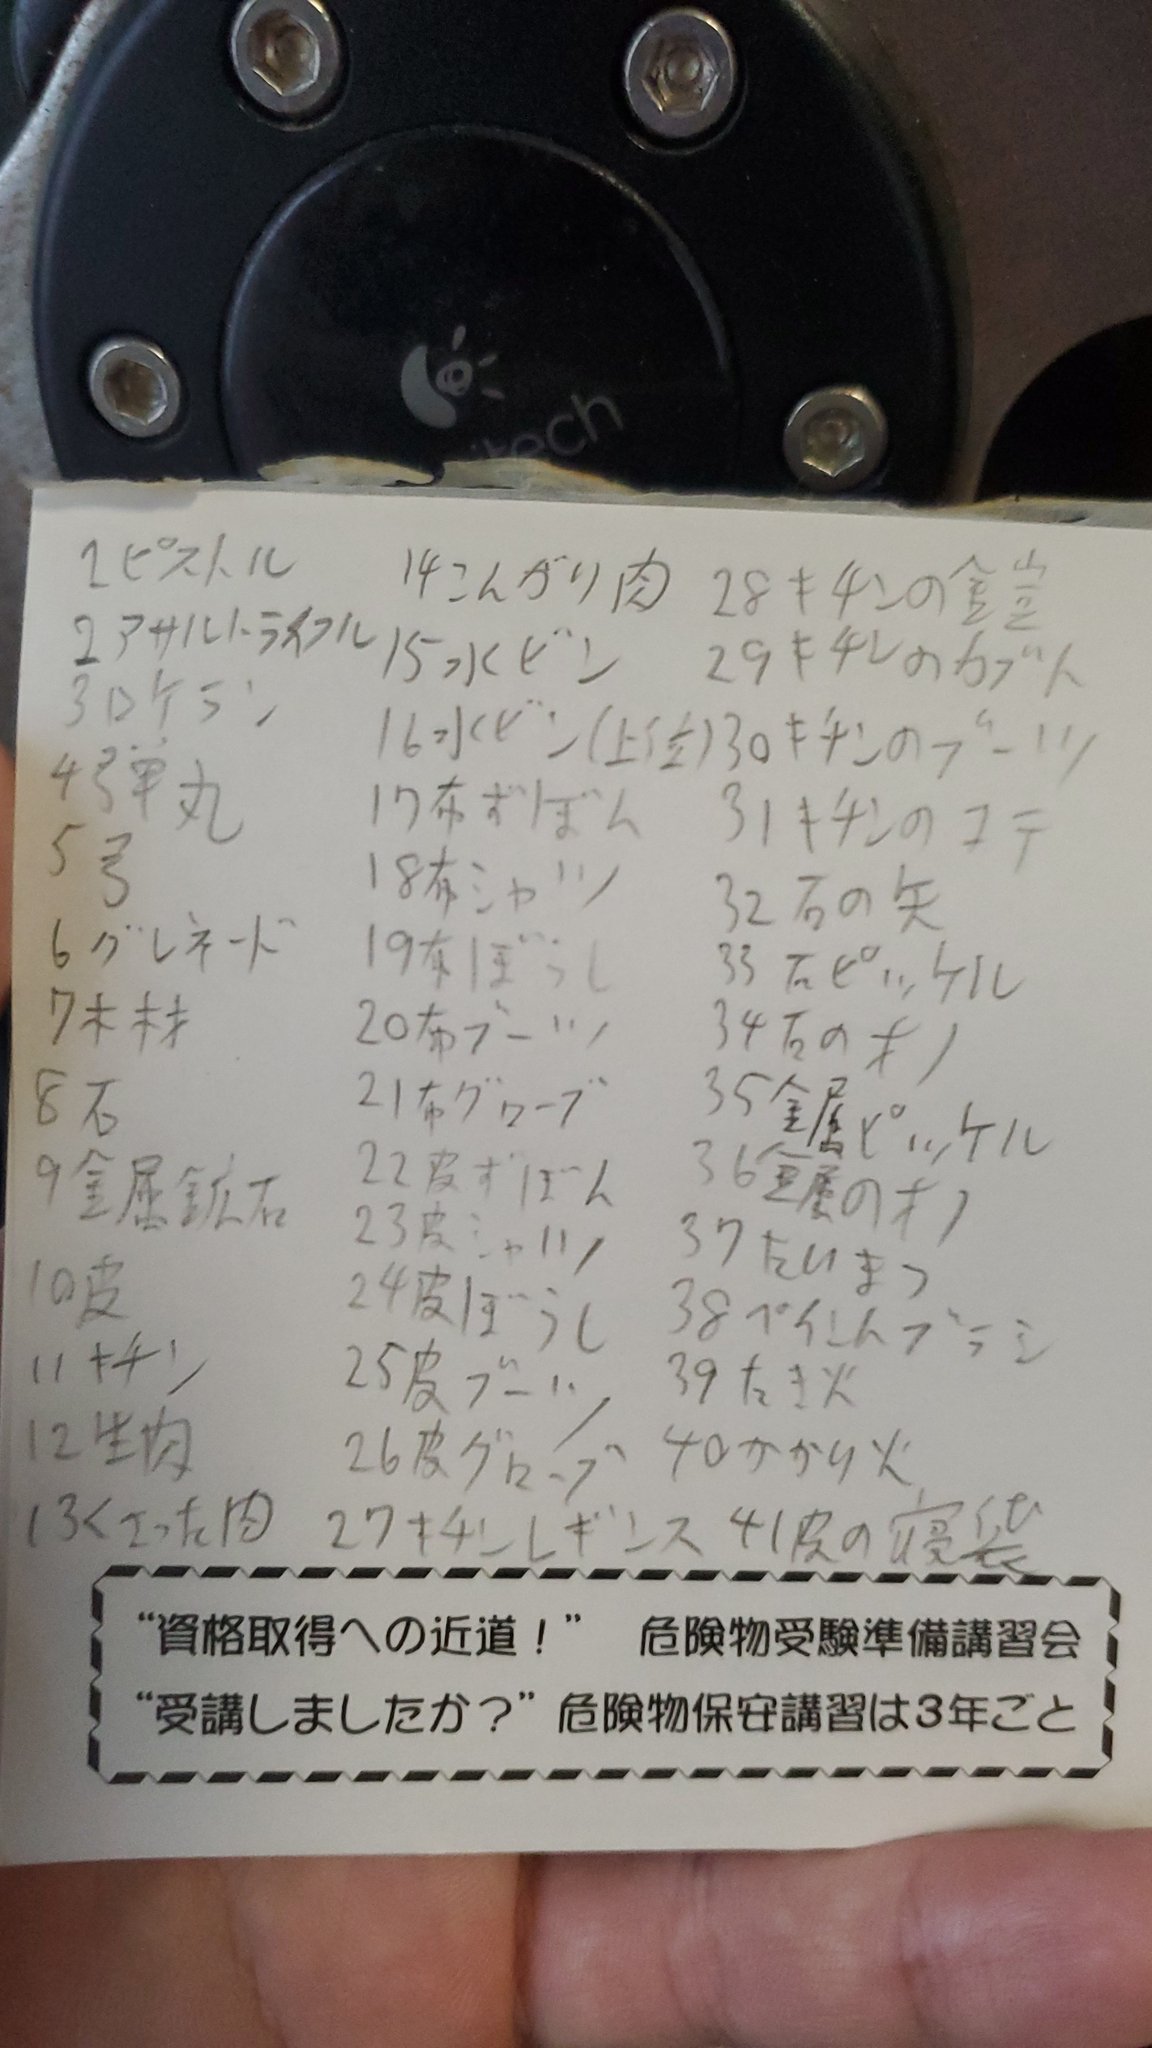 itech
1ピストル
2アサルトライフル
3ロケラン
4弾丸
5弓
6グレネード
7木材
8石
9金属鉱石
10皮
11キチン
12生肉
13くさった肉
14こんがり肉
15水ビン
16水ビン(上位)
17布ずぼん
18布シャツ
19布ぼうし
20布ブーツ
21布グローブ
22皮ずぼん
23皮シャツ
24皮ぼうし
25皮ブーツ
26皮グローブ
27キチンレギンス
28キチンの鎧
29キチンのカブト
30キチンのブーツ
31キチンのコテ
32石の矢
33石ピッケル
34石のオノ
35金属ピッケル
36金属のオノ
37たいまつ
38ペイントブラシ
39たき火
40かかり火
41皮の寝袋
“資格取得への近道！” 危険物受験準備講習会
“受講しましたか？” 危険物保安講習は3年ごと